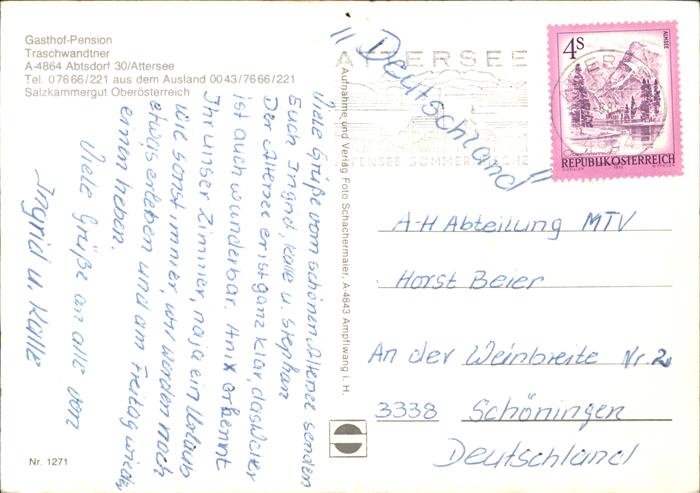 Gasthof-Pension
Traschwandtner
A-4864 Abtsdorf 30/Attersee
Tel. 07666/221 aus dem Ausland 0043/7666/221
Salzkammergut Oberösterreich
Viele Grüße vom schönen Attersee senden
Euch Ingrid, Kalle u. Stephan
Der Attersee ist ganz klar, das Wetter
ist auch wunderbar. Anix erkennt
Ihr unser Zimmer, naja ein Urlaub
wie sonst immer, wir werden noch
etwas erleben und am Freitag wieder
einen heben.
Viele Grüße an alle von
Ingrid u. Kalle
Nr. 1271
Aufnahme und Verlag Foto Schachermaier, A-4843 Ampflwang i. H.
"Deutschland"
ATTERSEE
ATTERSEE SOMMERFRISCHE
4S
ALMSEE
REPUBLIK ÖSTERREICH
A-H Abteilung MTV
Horst Beier
An der Weinbreite Nr. 2
3338 Schöningen
Deutschland